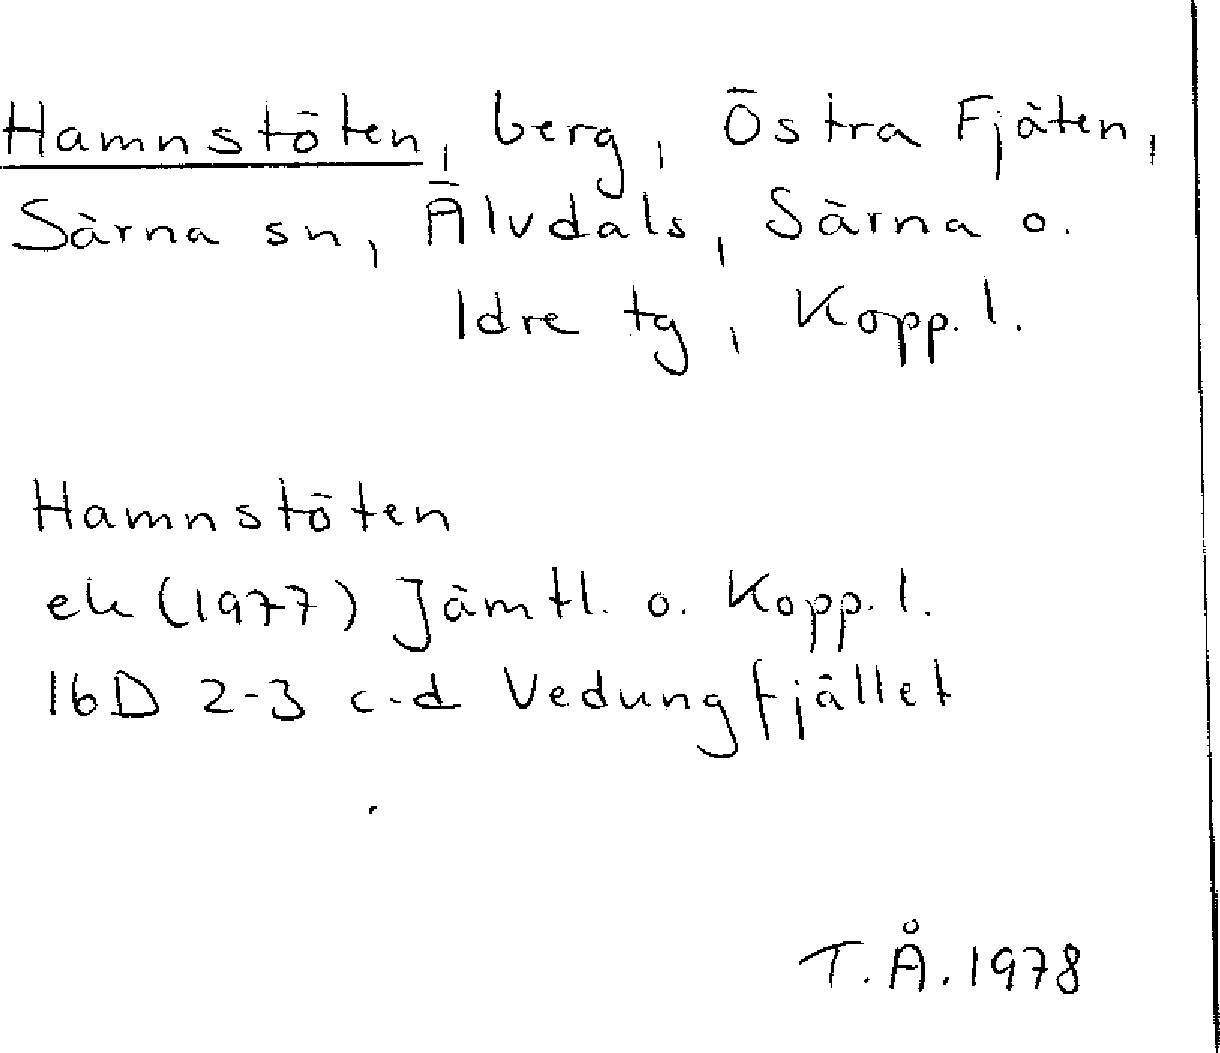 Hamnstöten, berg, Östra Fjäten,
Särna sn, Älvdals, Särna o.
Idre tg, Kopp. l.
Hamnstöten
ek (1977) Jämtl. o. Kopp. l.
16D 2-3 c-d Vedungfjället
T.Å. 1978